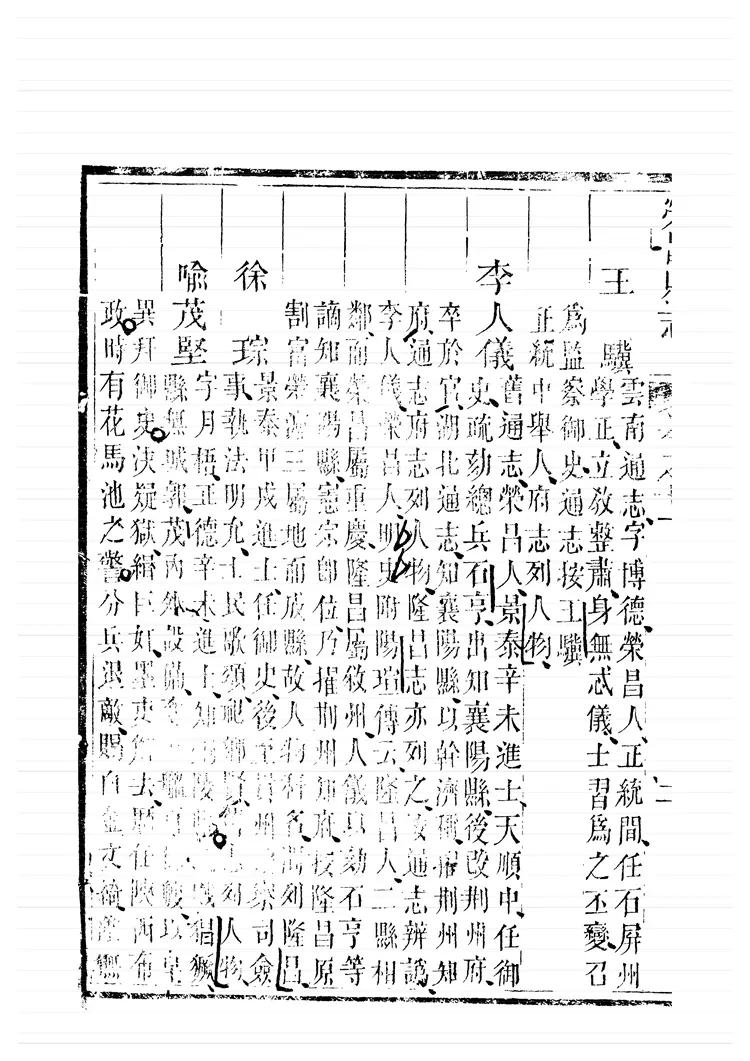 王驥雲南通志字博德榮昌人正統間任石屏州
學正立敎整肅身無忒儀士習爲之丕變召
爲監察御史通志按王驥
正統中舉人府志列人物
李人儀舊通志榮昌人景泰辛未進士天順中任御
史疏劾總兵石亨出知襄陽縣後改荆州府
卒於官湖北通志知襄陽縣以幹濟稱擢荆州知
府通志府志列人物隆昌志亦列之通志辨譌
李人儀榮昌人明史附楊瑄傳云隆昌人二縣相
鄰而榮昌屬重慶隆昌屬敘州人儀以劾石亨等
謫知襄陽縣憲宗卽位乃擢荆州知府按隆昌原
割富榮瀘三屬地而成縣故人物科名湖列隆昌
徐琮景泰甲戌進士任御史後至州司僉
事執法明允士民歌頌祀鄉賢志列人物
喩茂堅字月梧正德辛未進士知陵猖獗
縣無城郭茂堅設備以卓
異拜御史決疑獄緝巨奸墨吏解去歷任陝西布
政時有花馬池之警分兵退敵賜白金文綺